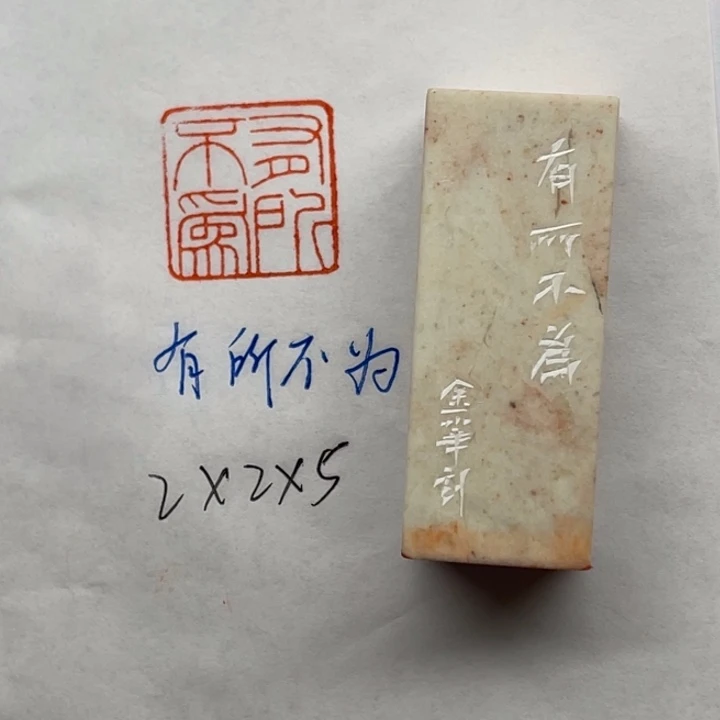 有所
不為
有所不为
2×2×5
有所不為
金華刻